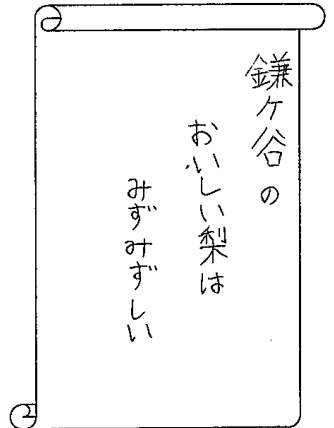 鎌ケ谷の
おいしい梨は
みずみずしい